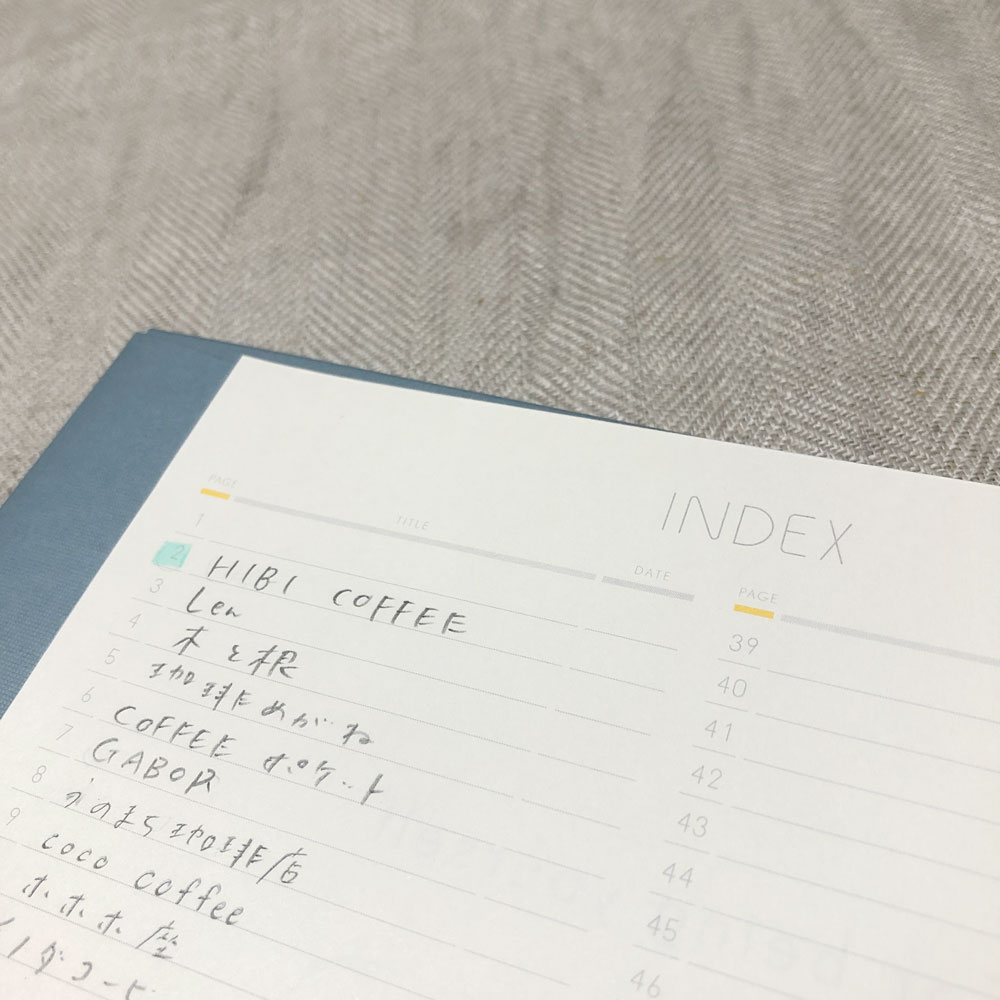 INDEX
PAGE TITLE DATE
1
2 HIBI COFFEE
3 Len
4 木と根
5 珈琲めがね
6 COFFEE ポケット
7 GABOR
8 かのまち珈琲店
9 coco coffee
ホホホ座
イノダコーヒ
PAGE
39
40
41
42
43
44
45
46